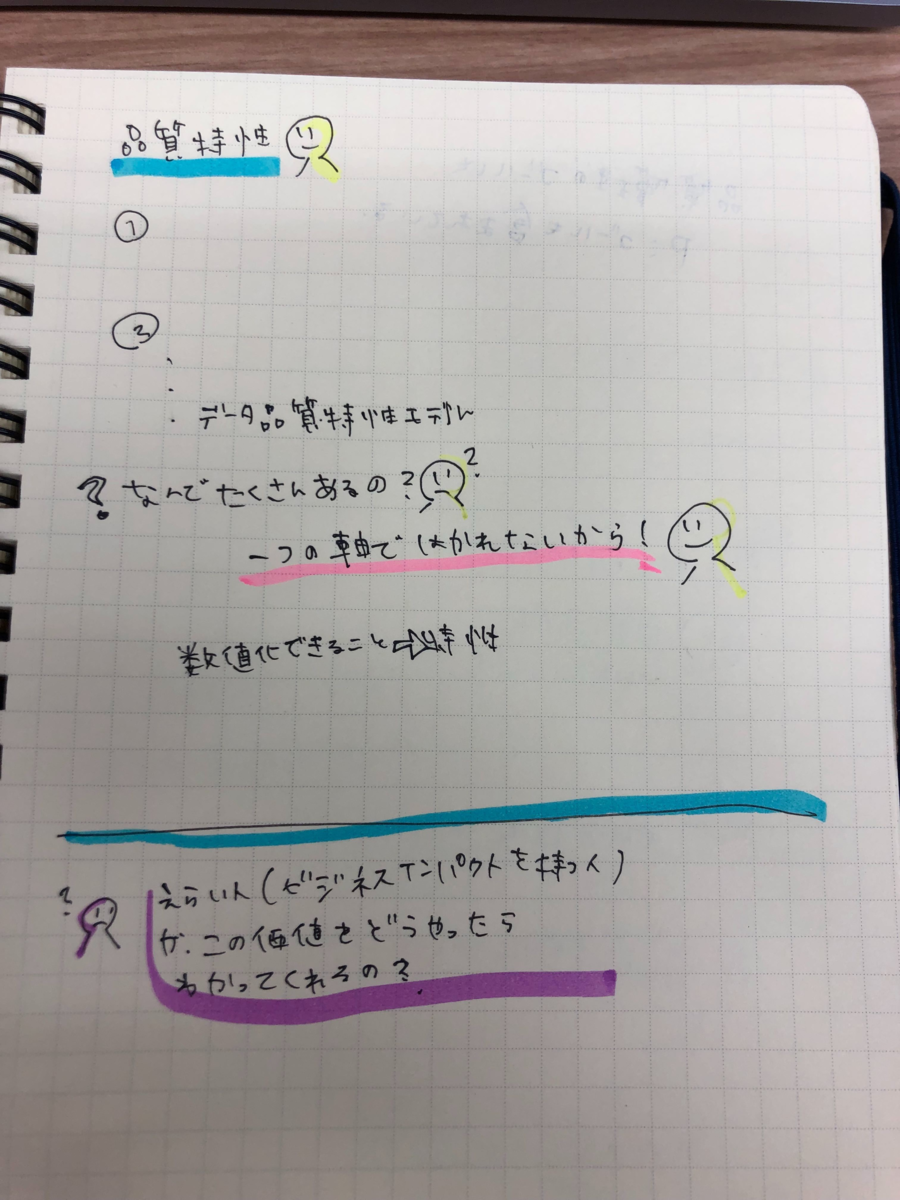 品質特性
①
③
・
・
・データ品質特性モデル
? なんでたくさんあるの? ?
一つの軸ではかれないから!
数値化できること⇨特性
?
えらい人(ビジネスインパクトを持つ人)
が、この価値をどうやったら
わかってくれるの?